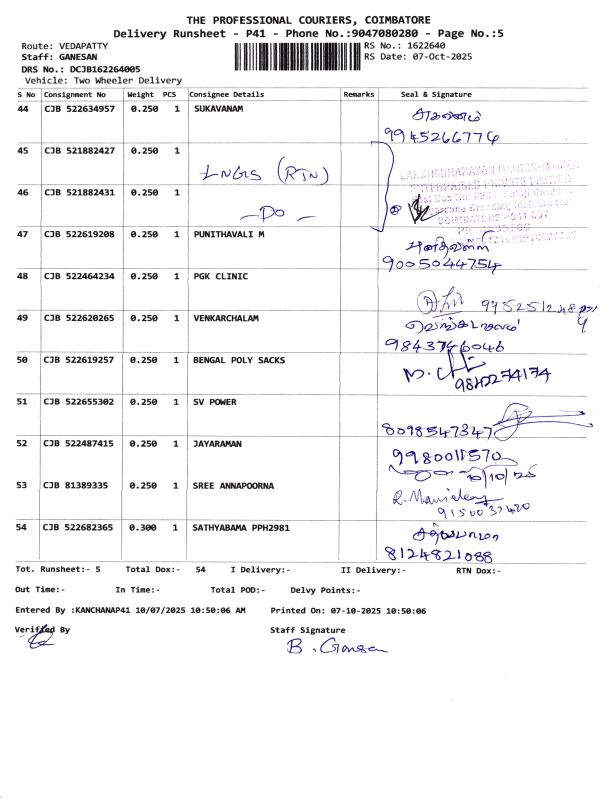 THE PROFESSIONAL COURIERS, COIMBATORE
Delivery Runsheet - P41 - Phone No.:9047080280 - Page No.:5
Route: VEDAPATTY
RS No.: 1622640
Staff: GANESAN
RS Date: 07-Oct-2025
DRS No.: DCJB162264005
Vehicle: Two Wheeler Delivery
S No Consignment No Weight PCS Consignee Details Remarks Seal & Signature
44 CJB 522634957 0.250 1 SUKAVANAM
9945266776
45 CJB 521882427 0.250 1
LNGIS (RTN)
46 CJB 521882431 0.250 1
- Do -
47 CJB 522619208 0.250 1 PUNITHAVALI M
9005044754
48 CJB 522464234 0.250 1 PGK CLINIC
49 CJB 522620265 0.250 1 VENKARCHALAM
9843746046
50 CJB 522619257 0.250 1 BENGAL POLY SACKS
51 CJB 522655302 0.250 1 SV POWER
8098547347
52 CJB 522487415 0.250 1 JAYARAMAN
9980011570
53 CJB 81389335 0.250 1 SREE ANNAPOORNA
54 CJB 522682365 0.300 1 SATHYABAMA PPH2981
8124821088
Tot. Runsheet:- 5 Total Dox:- 54 I Delivery:- II Delivery:- RTN Dox:-
Out Time:- In Time:- Total POD:- Delvy Points:-
Entered By :KANCHANAP41 10/07/2025 10:50:06 AM Printed On: 07-10-2025 10:50:06
Verified By Staff Signature